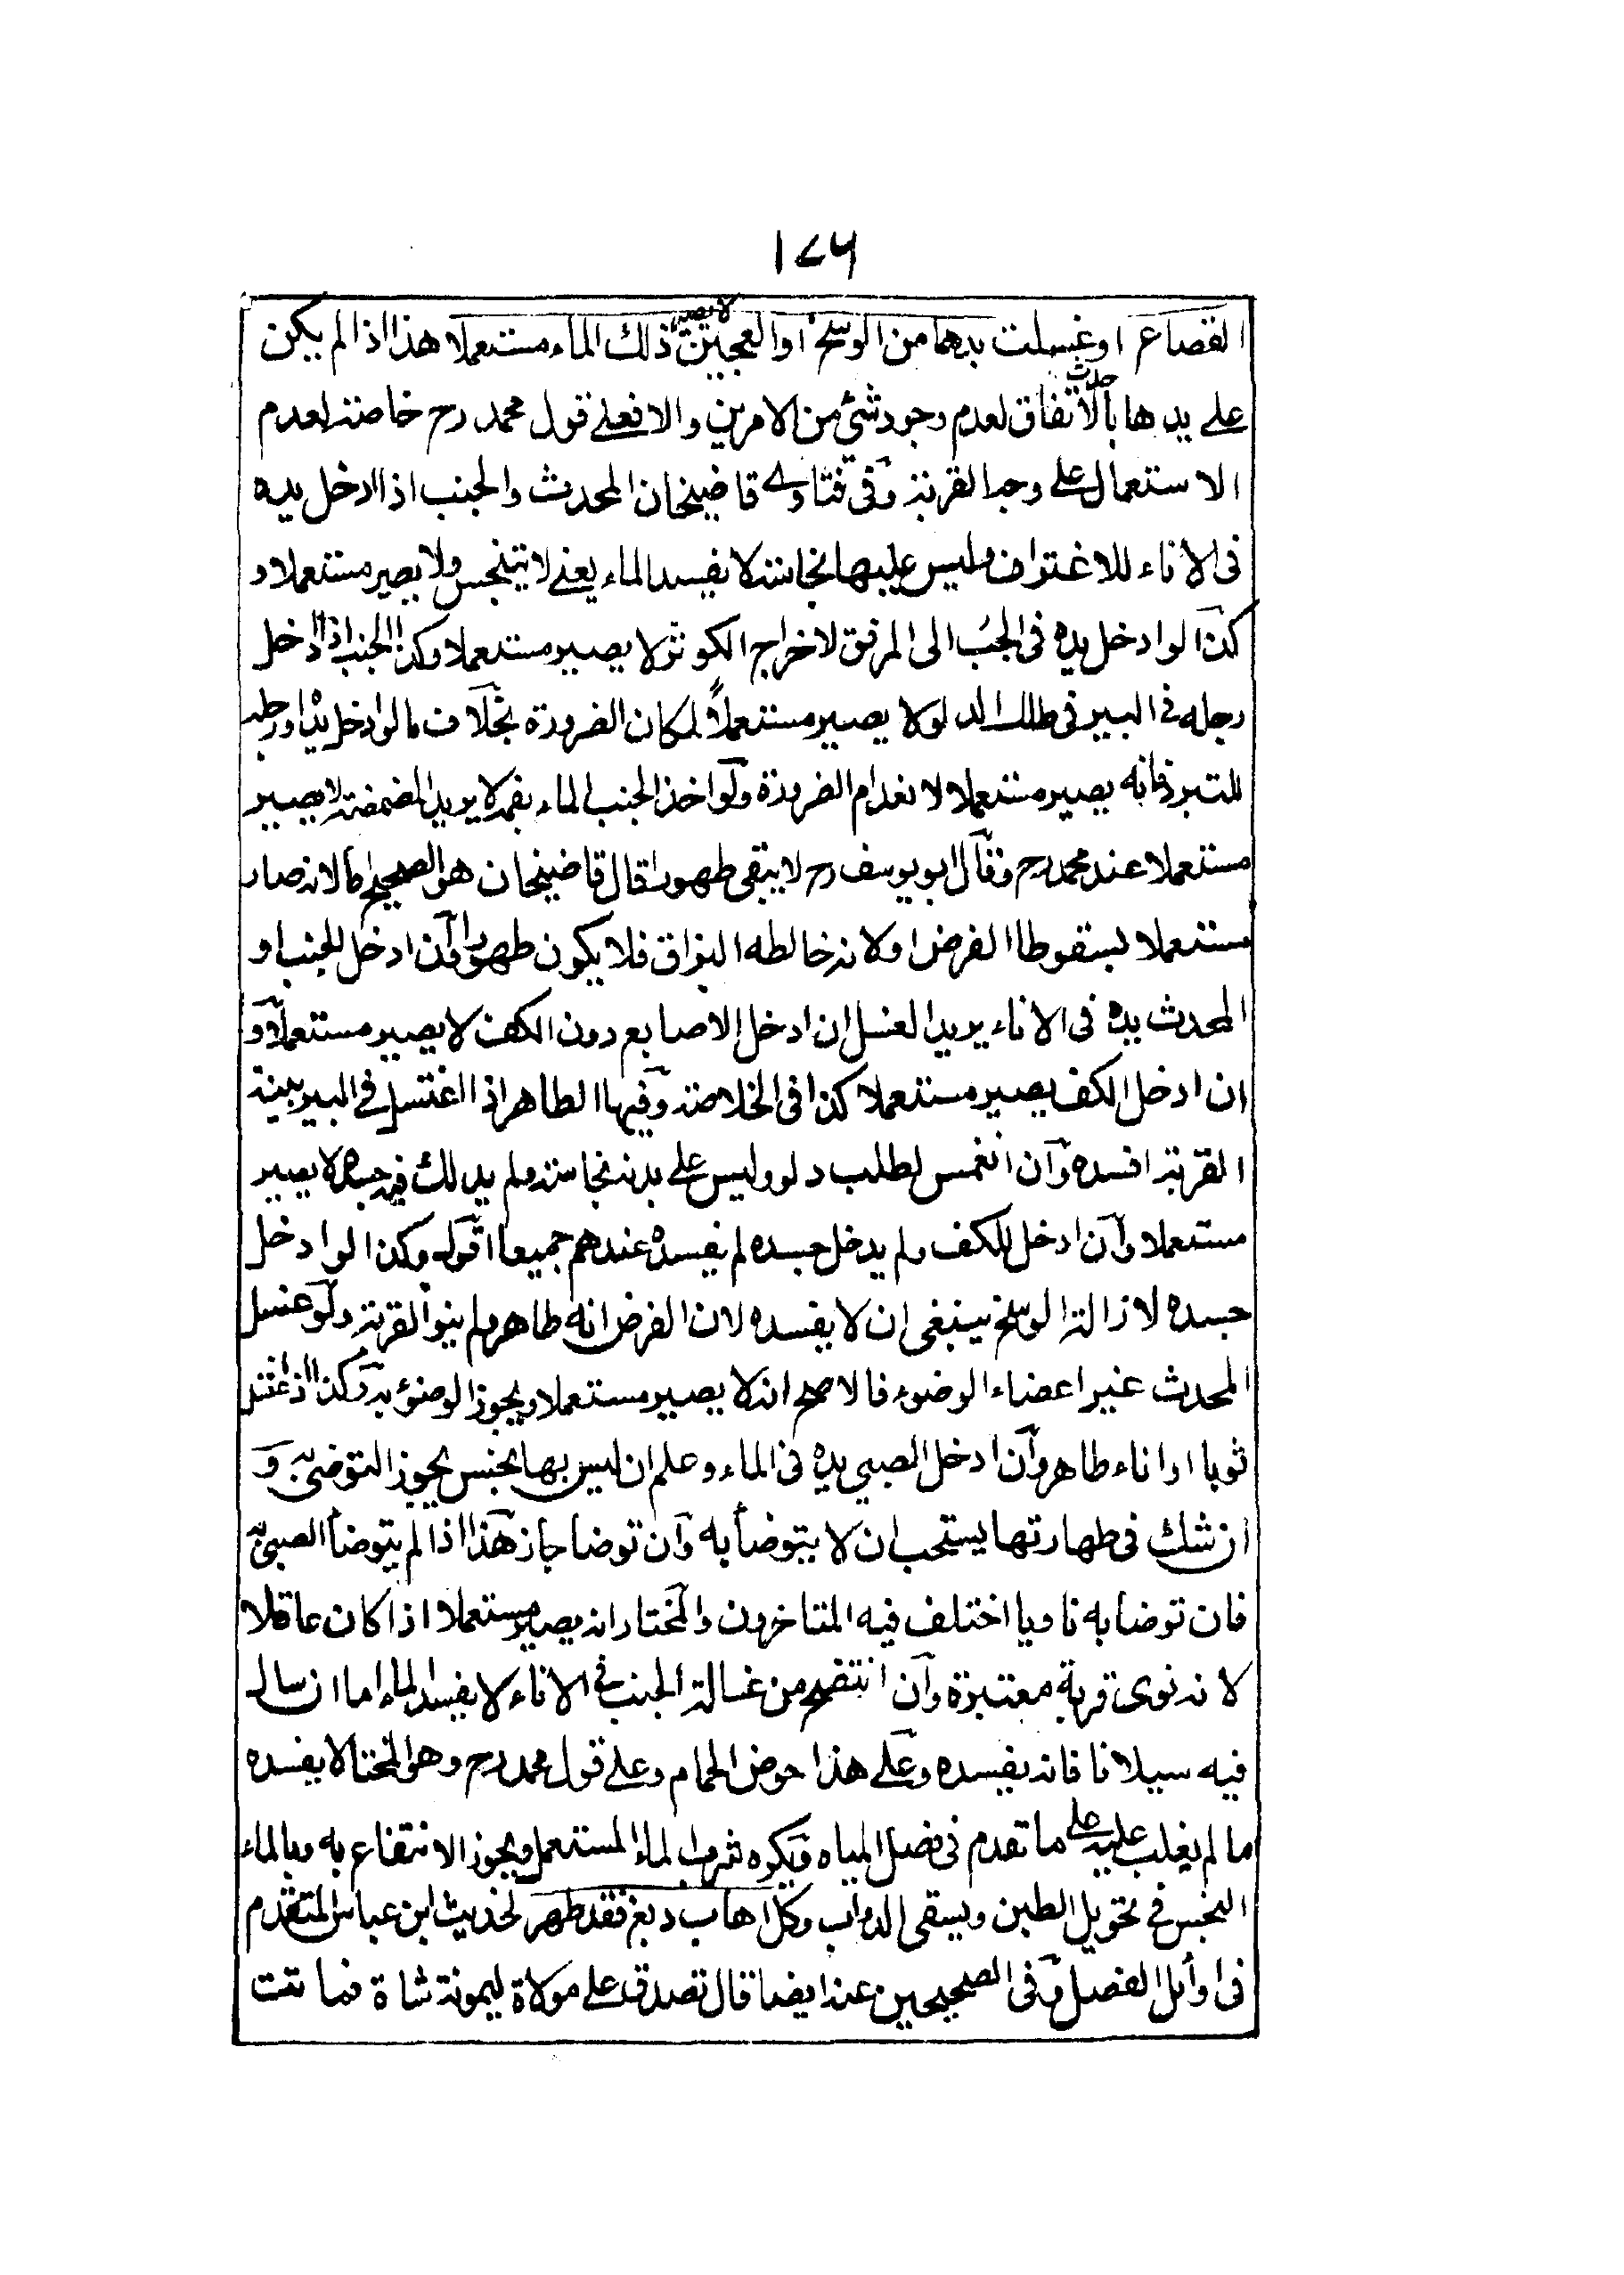 ١٧٦
القصاع او غسلت يدهما من الوسخ او العجين لا يصير ذلك الماء مستعملا هذا اذا لم يكن
على يدها حدث بالاتفاق لعدم وجود شئ من الامرين والا فعلى قول محمد رح خاصة لعدم
الاستعمال على وجه القربة وفى فتاوى قاضيخان المحدث والجنب اذا ادخل يده
فى الاناء للاغتراف وليس عليها نجاسة لا يفسد الماء يعنى لا يتنجس ولا يصير مستعملا و
كذا لو ادخل يده فى الجب الى المرفق لاخراج الكوز لا يصير مستعملا وكذا الجنب اذا ادخل
رجله فى البير فى طلب الدلو لا يصير مستعملاً لمكان الضرورة بخلاف ما لو ادخل يده او رجله
للتبرد فانه يصير مستعملا لانعدام الضرورة ولو اخذ الجنب الماء بفمه لا يريد المضمضة لا يصير
مستعملا عند محمد رح وقال ابو يوسف رح لا يبقى طهورا قال قاضيخان هو الصحيح اما لانه صار
مستعملا بسقوط الفرض او لانه خالطه البزاق فلا يكون طهورا وان ادخل الجنب او
المحدث يده فى الاناء يريد الغسل ان ادخل الاصابع دون الكف لا يصير مستعملا و
ان ادخل الكف يصير مستعملا كذا فى الخلاصة وفيها الطاهر اذا اغتسل فى البير بنية
القربة افسده وان انغمس لطلب دلو وليس على بدنه نجاسة ولم يدلك فيه جسده لا يصير
مستعملا وان ادخل الكف ولم يدخل جسده لم يفسده عندهم جميعا اقول وكذا لو ادخل
جسده لازالة الوسخ ينبغى ان لا يفسده لان الفرض انه طاهر ولم ينو القربة ولو غسل
المحدث غير اعضاء الوضوء فالاصح انه لا يصير مستعملا ويجوز الوضوء به وكذا اذا غسل
ثوبا او اناء طاهر وان ادخل الصبى يده فى الماء وعلم ان ليس بها نجس يجوز التوضئ به و
ان شك فى طهارتها يستحب ان لا يتوضأ به وان توضا جاز هذا اذا لم يتوضأ الصبى به
فان توضا به ناويا اختلف فيه المتاخرون والمختار انه يصير مستعملا اذا كان عاقلا
لانه نوى قربة معتبرة وان انتضح من غسالة الجنب فى الاناء لا يفسد الماء اما ان سال
فيه سيلانا فانه يفسده وعلى هذا حوض الحمام وعلى قول محمد رح وهو المختار لا يفسده
ما لم يغلب عليه على ما تقدم فى فصل المياه ويكره شرب الماء المستعمل ويجوز الانتفاع به وبالماء
النجس فى تحويل الطين ويسقى الدواب وكل اهاب دبغ فقد طهر لحديث ابن عباس المتقدم
فى اوائل الفصل وفى الصحيحين عنه ايضا قال تصدق على مولاة لميمونة شاة فماتت